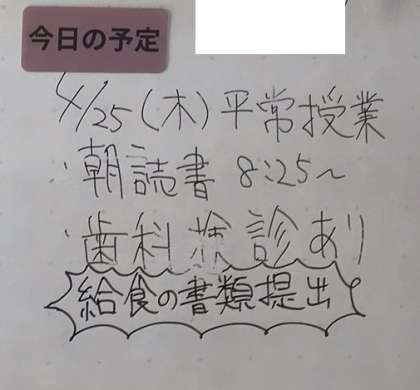 今日の予定
4/25(木)平常授業
・朝読書 8:25〜
・歯科検診あり
給食の書類提出